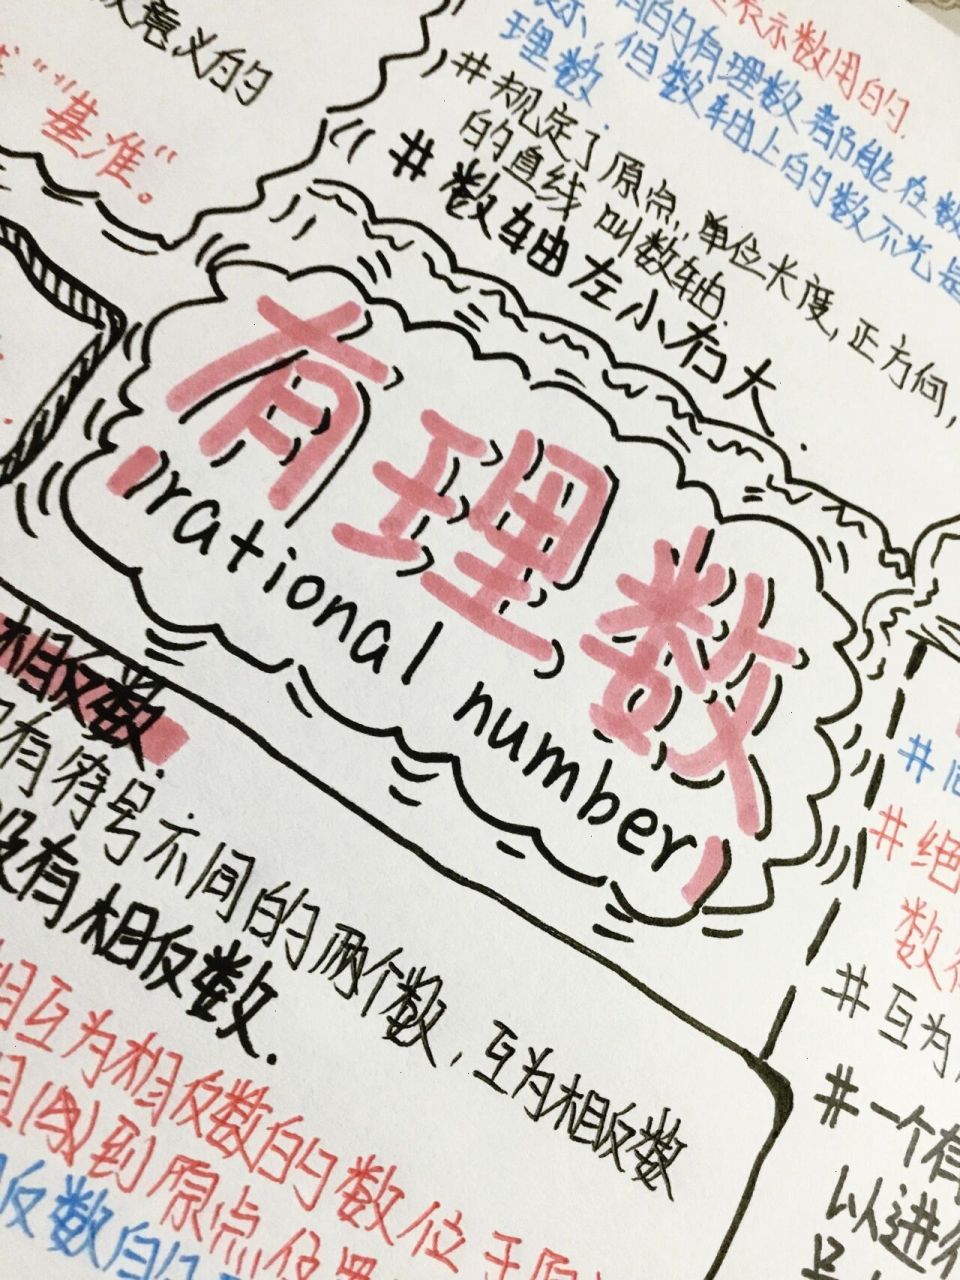 意义的
"基准"。
表示数用的.
的有理数都能在数
示,但数轴上的数不光是
理数.
#规定了原点,单位长度,正方向,
的直线叫数轴.
#数轴左小右大.
有理数
(rational number)
相反数.
有符号不同的两个数,互为相反数
没有相反数.
相互为相反数的数位于原
到原点
反数
#绝
数
#互为
#一个有
以进行
是